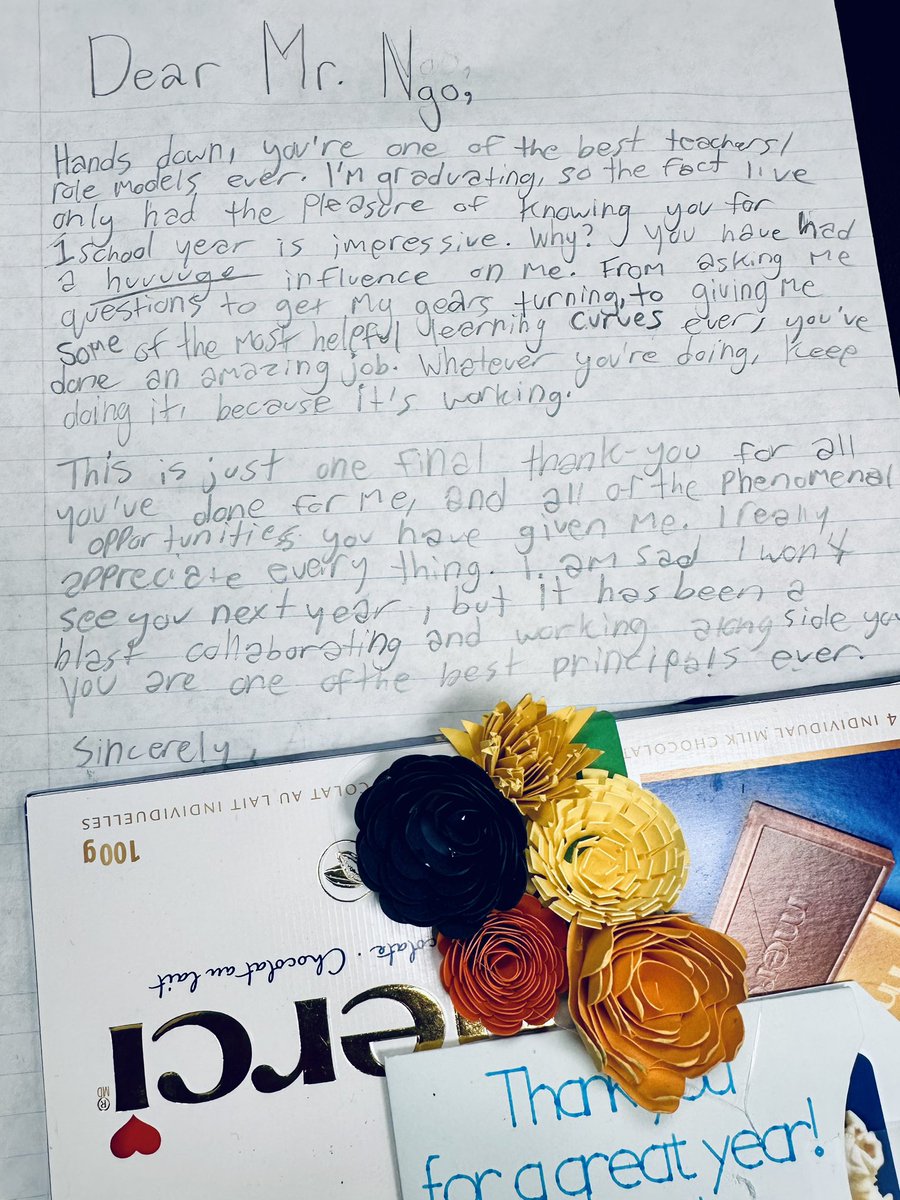 Dear Mr. Ngo,
Hands down, you're one of the best teachers/
role models ever. I'm graduating, so the fact I've
only had the pleasure of knowing you for
1 school year is impressive. Why? You have had
a huuuuge influence on me. From asking me
questions to get my gears turning, to giving me
some of the most helpful learning curves ever, you've
done an amazing job. Whatever you're doing, keep
doing it, because it's working.
This is just one final thank-you for all
you've done for me, and all of the phenomenal
opportunities you have given me. I really
appreciate every thing. I am sad I won't
see you next year, but it has been a
blast collaborating and working along side you
You are one of the best principals ever.
Sincerely,
4 INDIVIDUAL MILK CHOCOLAT
COLAT AU LAIT INDIVIDUELLES
100g
colate · Chocolat au lait
merci
MD
Thank you
for a great year!